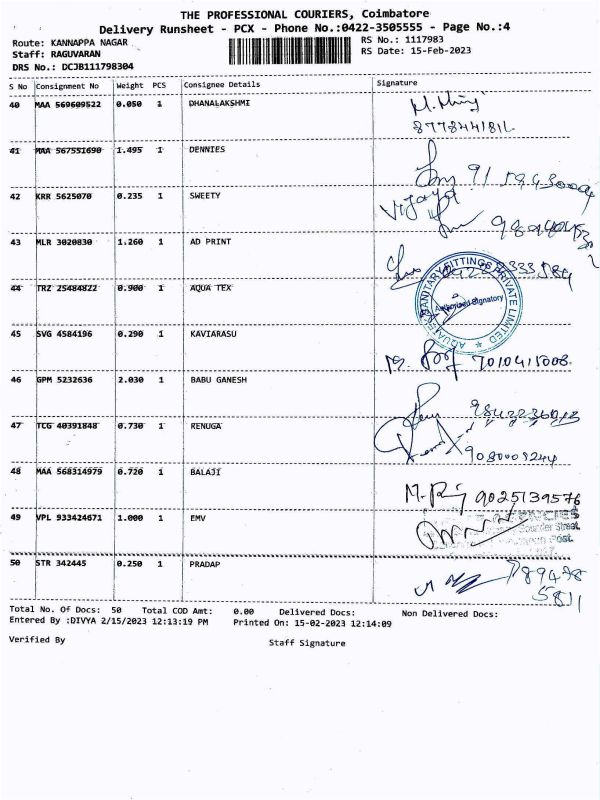 THE PROFESSIONAL COURIERS, Coimbatore
Delivery Runsheet - PCX - Phone No.:0422-3505555 - Page No.:4
Route: KANNAPPA NAGAR RS No.: 1117983
Staff: RAGUVARAN RS Date: 15-Feb-2023
DRS No.: DCJB111798304
S No Consignment No Weight PCS Consignee Details Signature
40 MAA 569609522 0.050 1 DHANALAKSHMI
41 MAA 567551690 1.495 1 DENNIES
42 KRR 5625070 0.235 1 SWEETY
Vijaya
43 MLR 3020830 1.260 1 AD PRINT
44 TRZ 25484822 0.900 1 AQUA TEX
AQUATEX SANITARY FITTINGS PRIVATE LIMITED
Authorised Signatory
45 SVG 4584196 0.290 1 KAVIARASU
7010415008.
46 GPM 5232636 2.030 1 BABU GANESH
47 TCG 40391848 0.730 1 RENUGA
9080009244
48 MAA 568314979 0.720 1 BALAJI
9025139576
49 VPL 933424671 1.000 1 EMV
50 STR 342445 0.250 1 PRADAP
Total No. Of Docs: 50 Total COD Amt: 0.00 Delivered Docs: Non Delivered Docs:
Entered By :DIVYA 2/15/2023 12:13:19 PM Printed On: 15-02-2023 12:14:09
Verified By Staff Signature